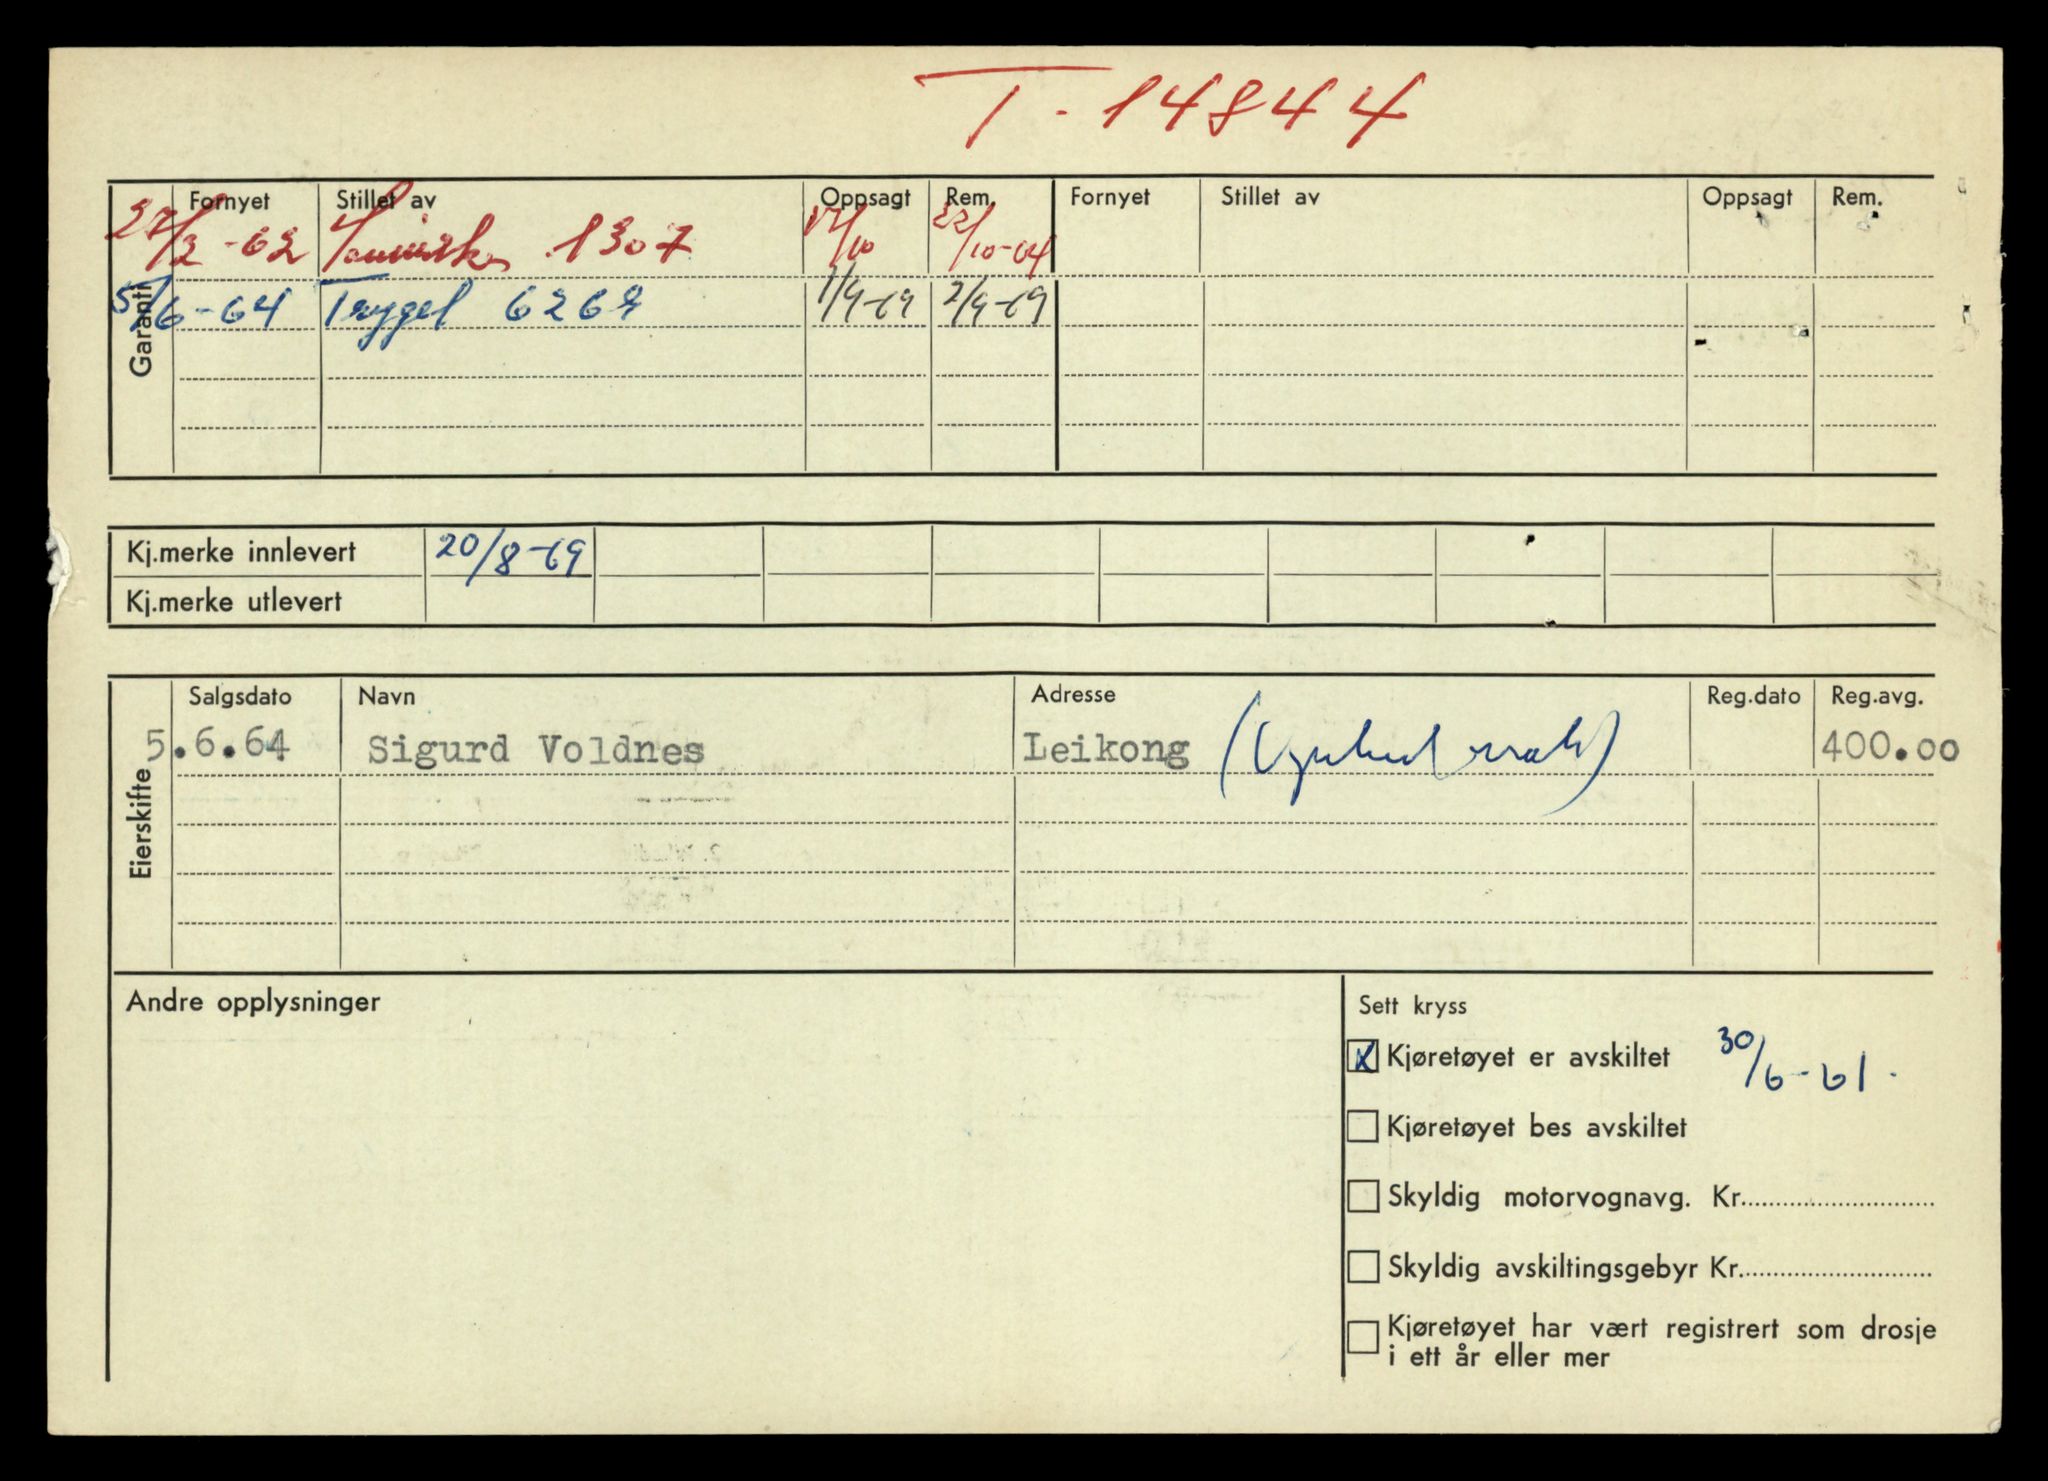 T-14844
Garanti
Fornyet Stillet av Oppsagt Rem. Fornyet Stillet av Oppsagt Rem.
27/2-62 1307 17/10 22/10-64
5/6-64 Trygel 6269 1/9-69 2/9-69
Kj.merke innlevert 20/8-69
Kj.merke utlevert
Eierskifte
Salgsdato Navn Adresse Reg.dato Reg.avg.
5.6.64 Sigurd Voldnes Leikong 400.00
Andre opplysninger
Sett kryss
X Kjøretøyet er avskiltet 30/6-61.
Kjøretøyet bes avskiltet
Skyldig motorvognavg. Kr.
Skyldig avskiltingsgebyr Kr.
Kjøretøyet har vært registrert som drosje
i ett år eller mer